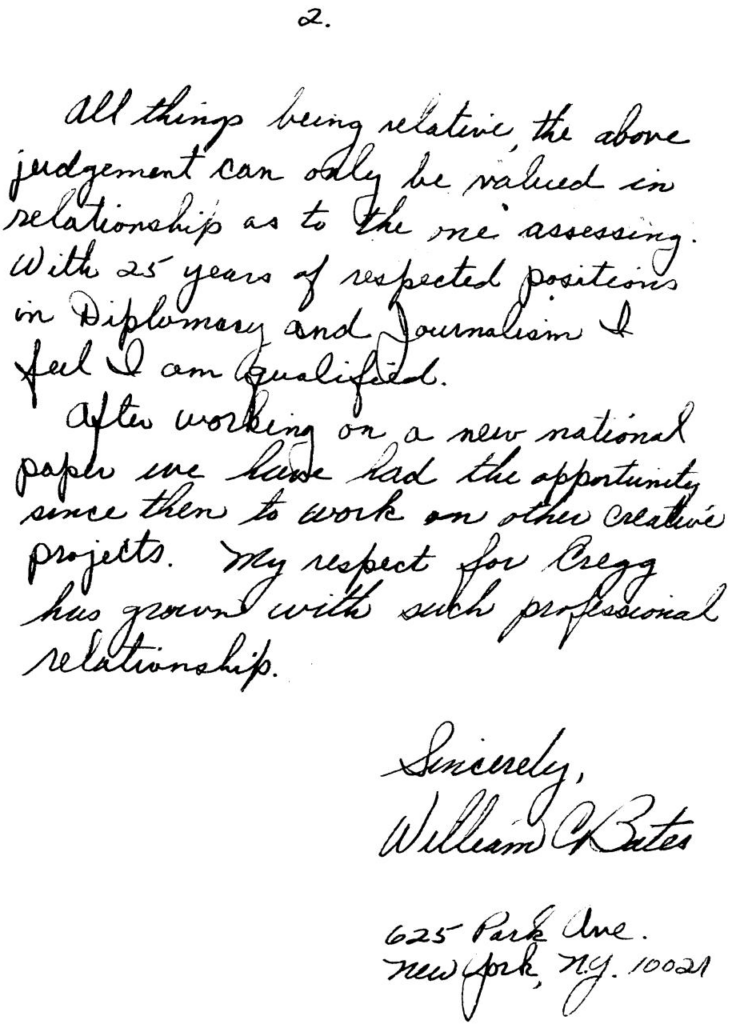 2.
All things being relative, the above
judgement can only be valued in
relationship as to the one assessing.
With 25 years of respected positions
in Diplomacy and Journalism I
feel I am qualified.
After working on a new national
paper we have had the opportunity
since then to work on other creative
projects. My respect for Cregg
has grown with such professional
relationship.
Sincerely,
William C Bates
625 Park Ave.
New York, N.Y. 10021